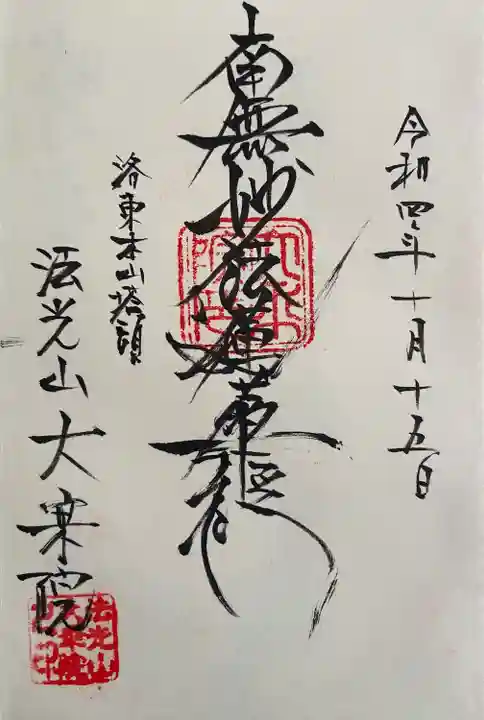 令和四年十月十五日
南無妙法蓮華経
洛東本山塔頭
法光山大乗院
法光山